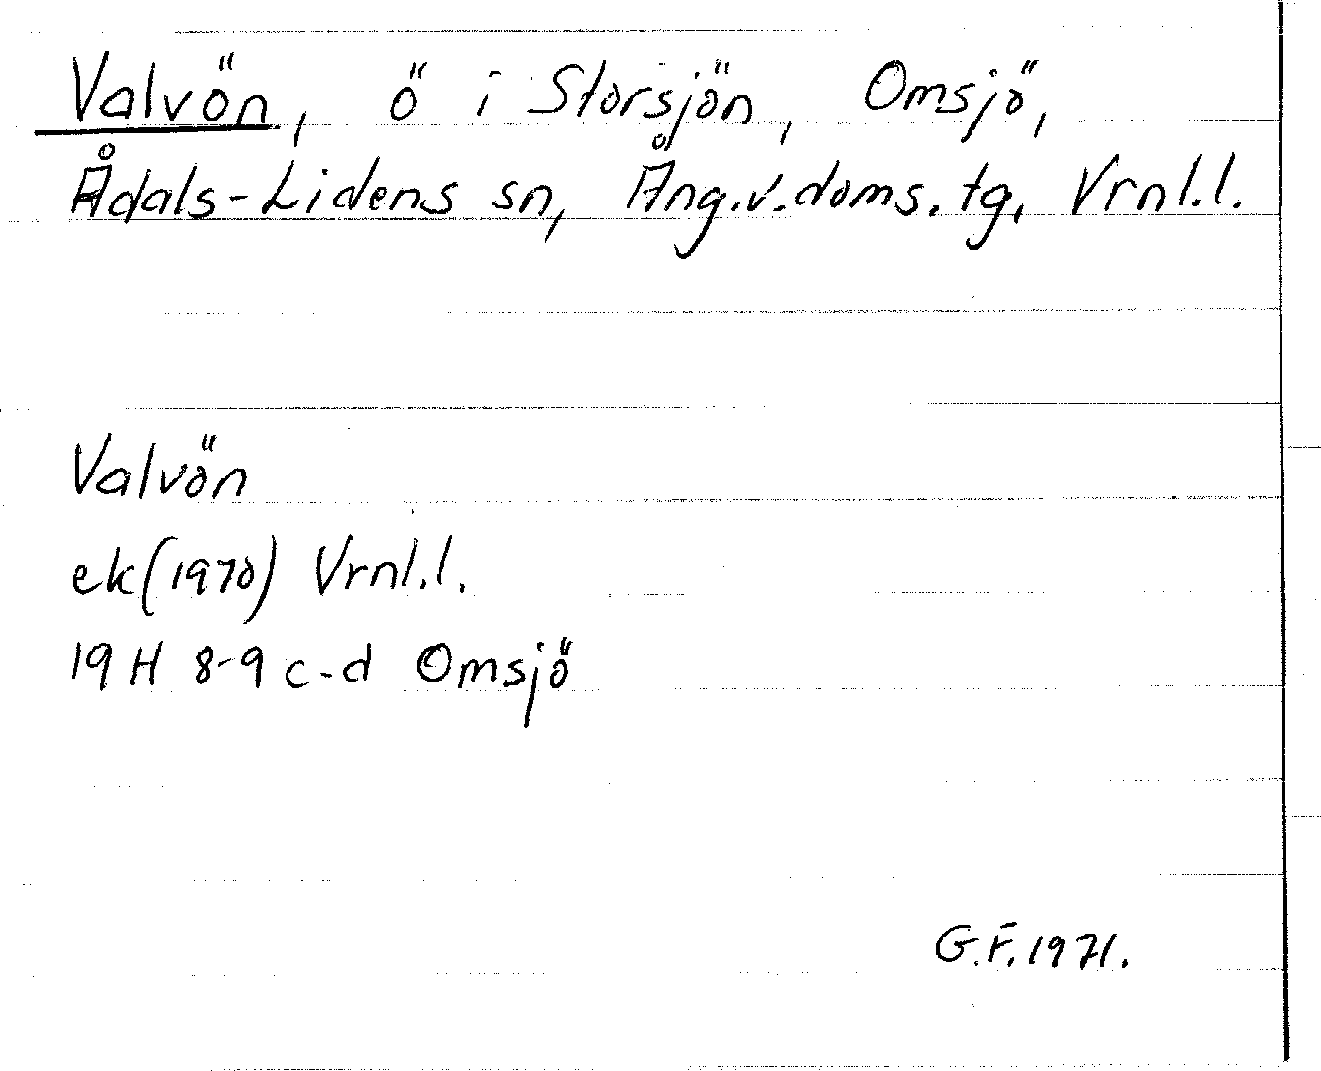 Valvön, ö i Storsjön, Omsjö,
Ådals-Lidens sn, Ång.v.doms.tg, Vrnl.l.
Valvön
ek(1970) Vrnl.l.
19 H 8-9 c-d Omsjö
G.F.1971.